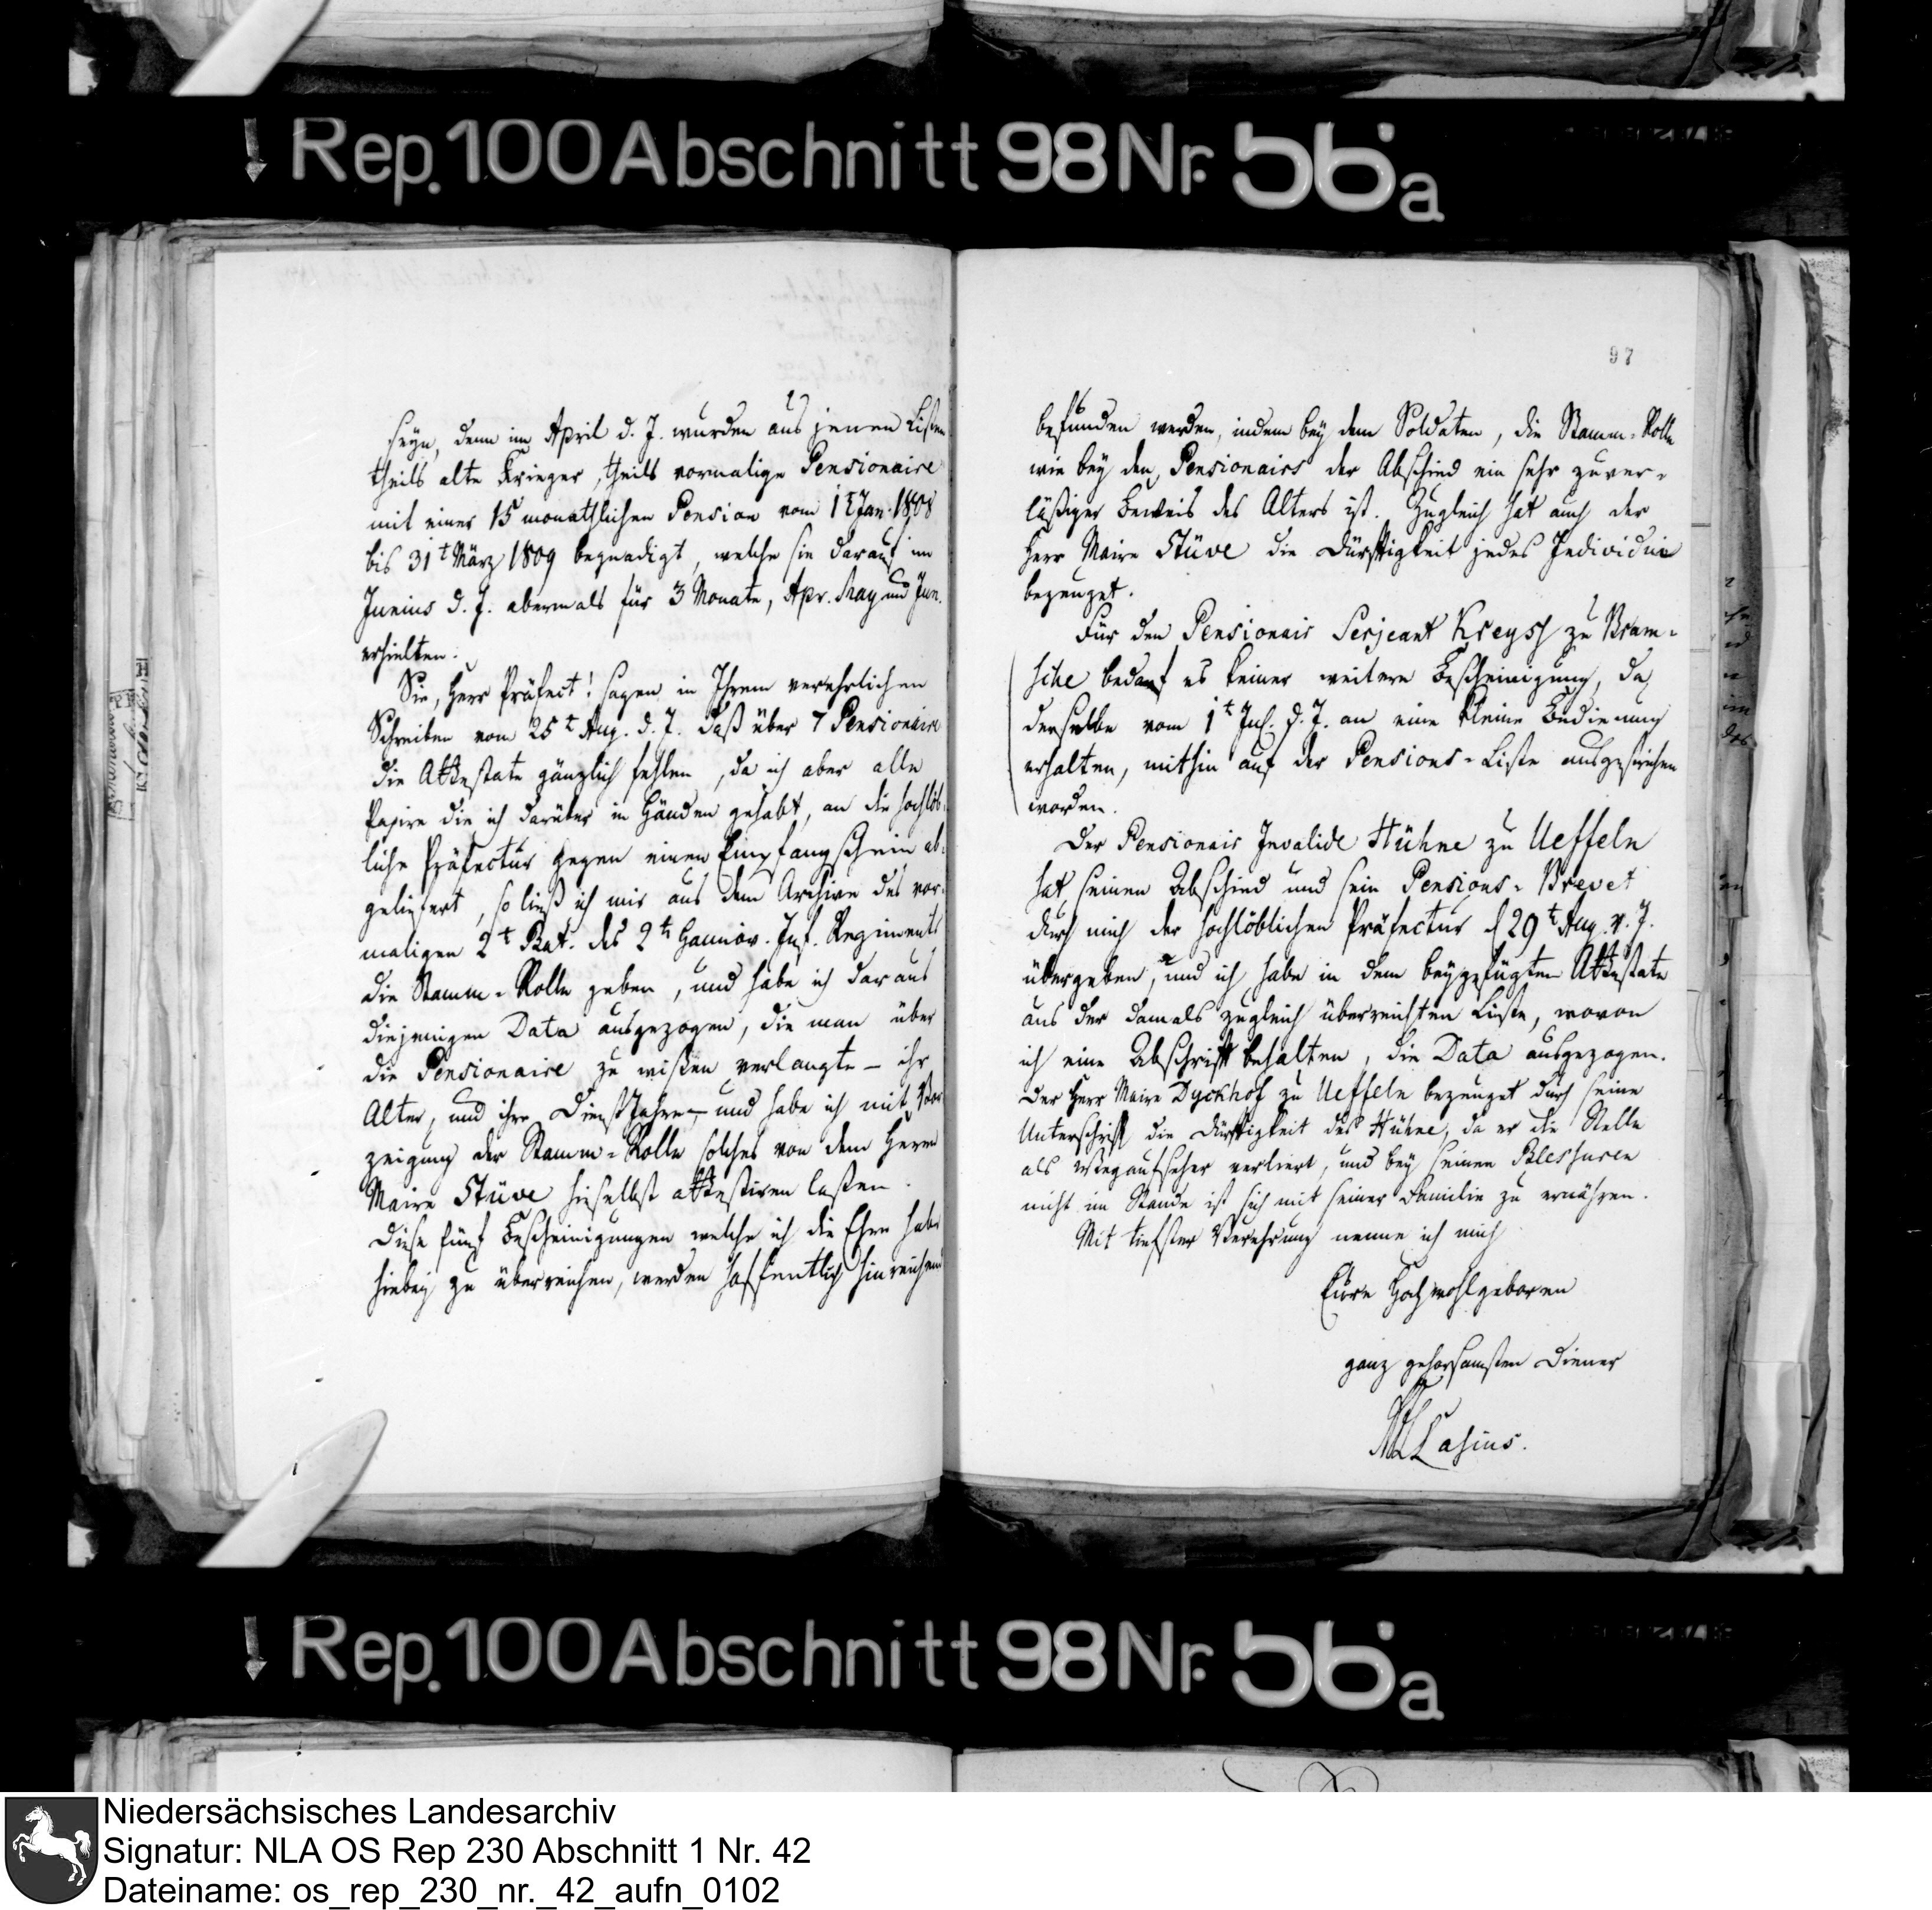 Rep. 100 Abschnitt 98 Nr. 56a
seyn, denn im April d. J. wurden aus jenen Listen
theils alte Krieger, theils vormalige Pensionaire
mit einer 15 monathlichen Pension vom 1t Jan. 1808
bis 31t März 1809 begnadigt, welche sie darauf im
Junius d. J. abermals für 3 Monate, Apr. May und Jun.
erhielten.
Sie, Herr Präfect! sagen in Ihrem verehrlichen
Schreiben vom 25t Aug. d. J. daß über 7 Pensionaire
die Attestate gänzlich fehlen, da ich aber alle
Papire die ich darüber in Händen gehabt, an die hochlöb-
liche Präfectur gegen einen Empfangschein ab-
geliefert, so ließ ich mir aus dem Archive des vor-
maligen 2t Bat. des 2t Hannöv. Inf. Regiments
die Stamm-Rolle geben, und habe ich daraus
diejenigen Data ausgezogen, die man über
die Pensionaire zu wißen verlangte – ihr
Alter, und ihre DienstJahre – und habe ich mit Vor
zeigung der Stamm-Rolle solches von dem Herrn
Maire Stüve hieselbst attestiren laßen.
Diese fünf Bescheinigungen welche ich die Ehre habe
hiebey zu überreichen, werden hoffentlich hinreichend
97
befunden werden, indem bey dem Soldaten, die Stamm-Rolle
wie bey den Pensionairs der Abschied ein sehr zuver-
läßiger Beweis des Alters ist. Zugleich hat auch der
Herr Maire Stüve die Dürftigkeit jedes Individui
bezeuget.
Für den Pensionair Serjeant Kreysch zu Bram-
sche bedarf es keiner weitern Bescheinigung, da
derselbe vom 1t Jul. d. J. an eine kleine Bedienung
erhalten, mithin auf der Pensions-Liste ausgestrichen
worden.
Der Pensionair Invalide Hühne zu Ueffeln
hat seinen Abschied und sein Pensions-Brevet
durch mich der hochlöblichen Präfectur d 29t Aug. v. J.
übergeben, und ich habe in dem beygefügten Attestate
aus der damals zugleich überreichten Liste, wovon
ich eine Abschrift behalten, die Data ausgezogen.
Der Herr Maire Dyckhof zu Ueffeln bezeuget durch seine
Unterschrift die Dürftigkeit des Hühne, da er die Stelle
als Wegaufseher verliert, und bey seinen Blessuren
nicht im Stande ist sich mit seiner Familie zu ernähren.
Mit tiefster Verehrung nenne ich mich
Eurer Hochwohlgeboren
ganz gehorsamsten Diener
Lasius.
Rep. 100 Abschnitt 98 Nr. 56a
Niedersächsisches Landesarchiv
Signatur: NLA OS Rep 230 Abschnitt 1 Nr. 42
Dateiname: os_rep_230_nr._42_aufn_0102